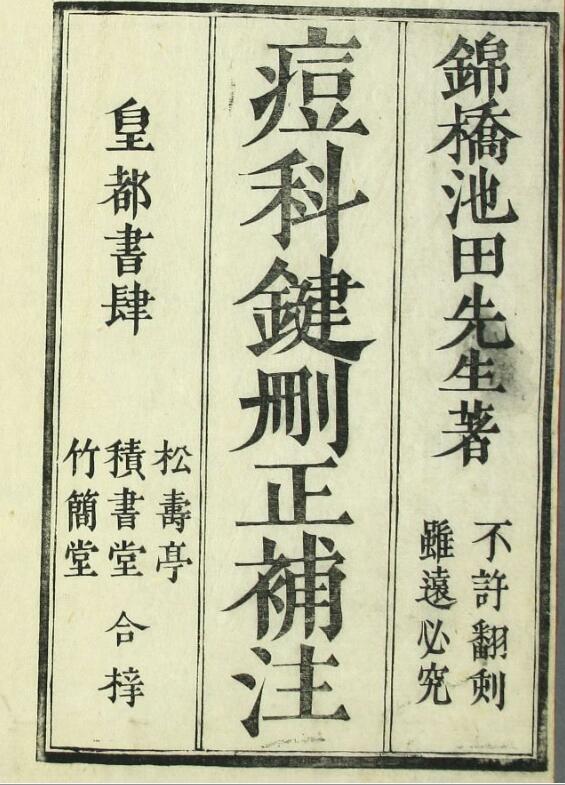 錦橋池田先生著
不許翻刻
雖遠必究
痘科鍵刪正補注
皇都書肆
松壽亭
積書堂
竹簡堂
合梓